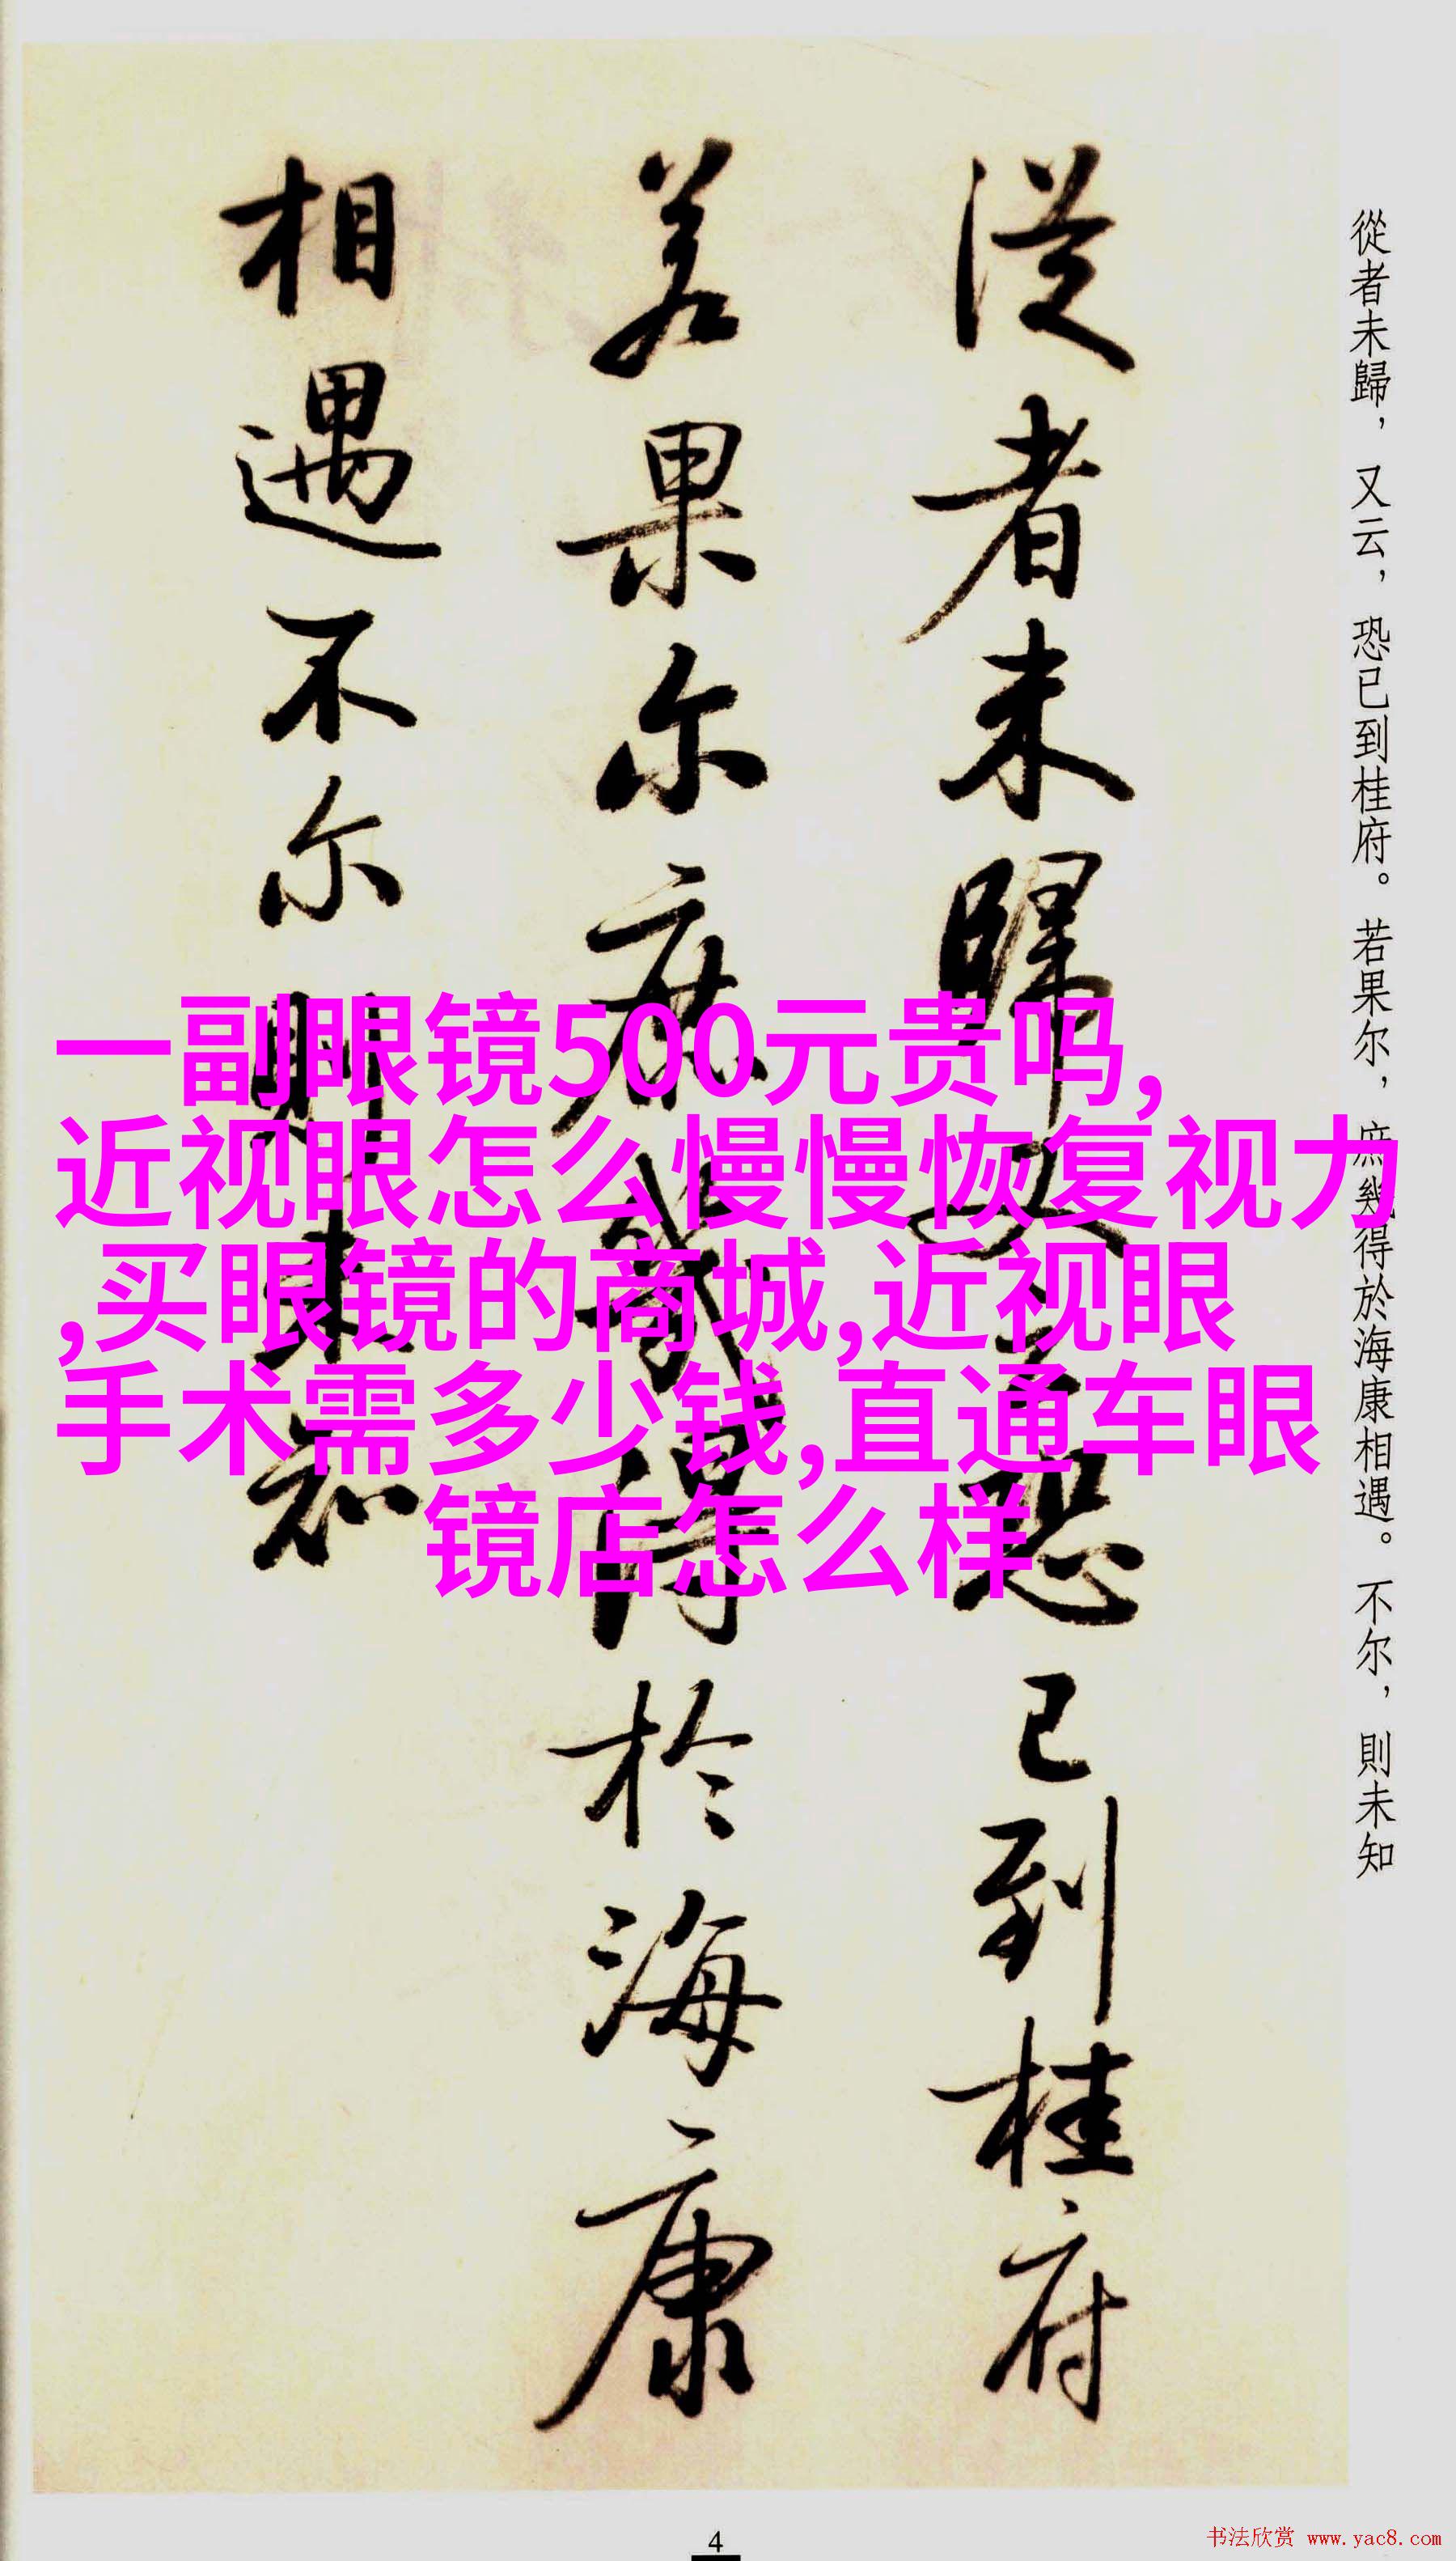 從者未歸，又云，恐已到桂府。若果尔，庶幾得於海康相遇。不尔，則未知
从者未歸又云恐
已到桂府
若果尔庶幾得
於海康
相遇不尔則未知
一副眼镜500元贵吗,
近视眼怎么慢慢恢复视力
,买眼镜的商城,近视眼
手术需多少钱,直通车眼
镜店怎么样
4
书法欣赏 www.yac8.com